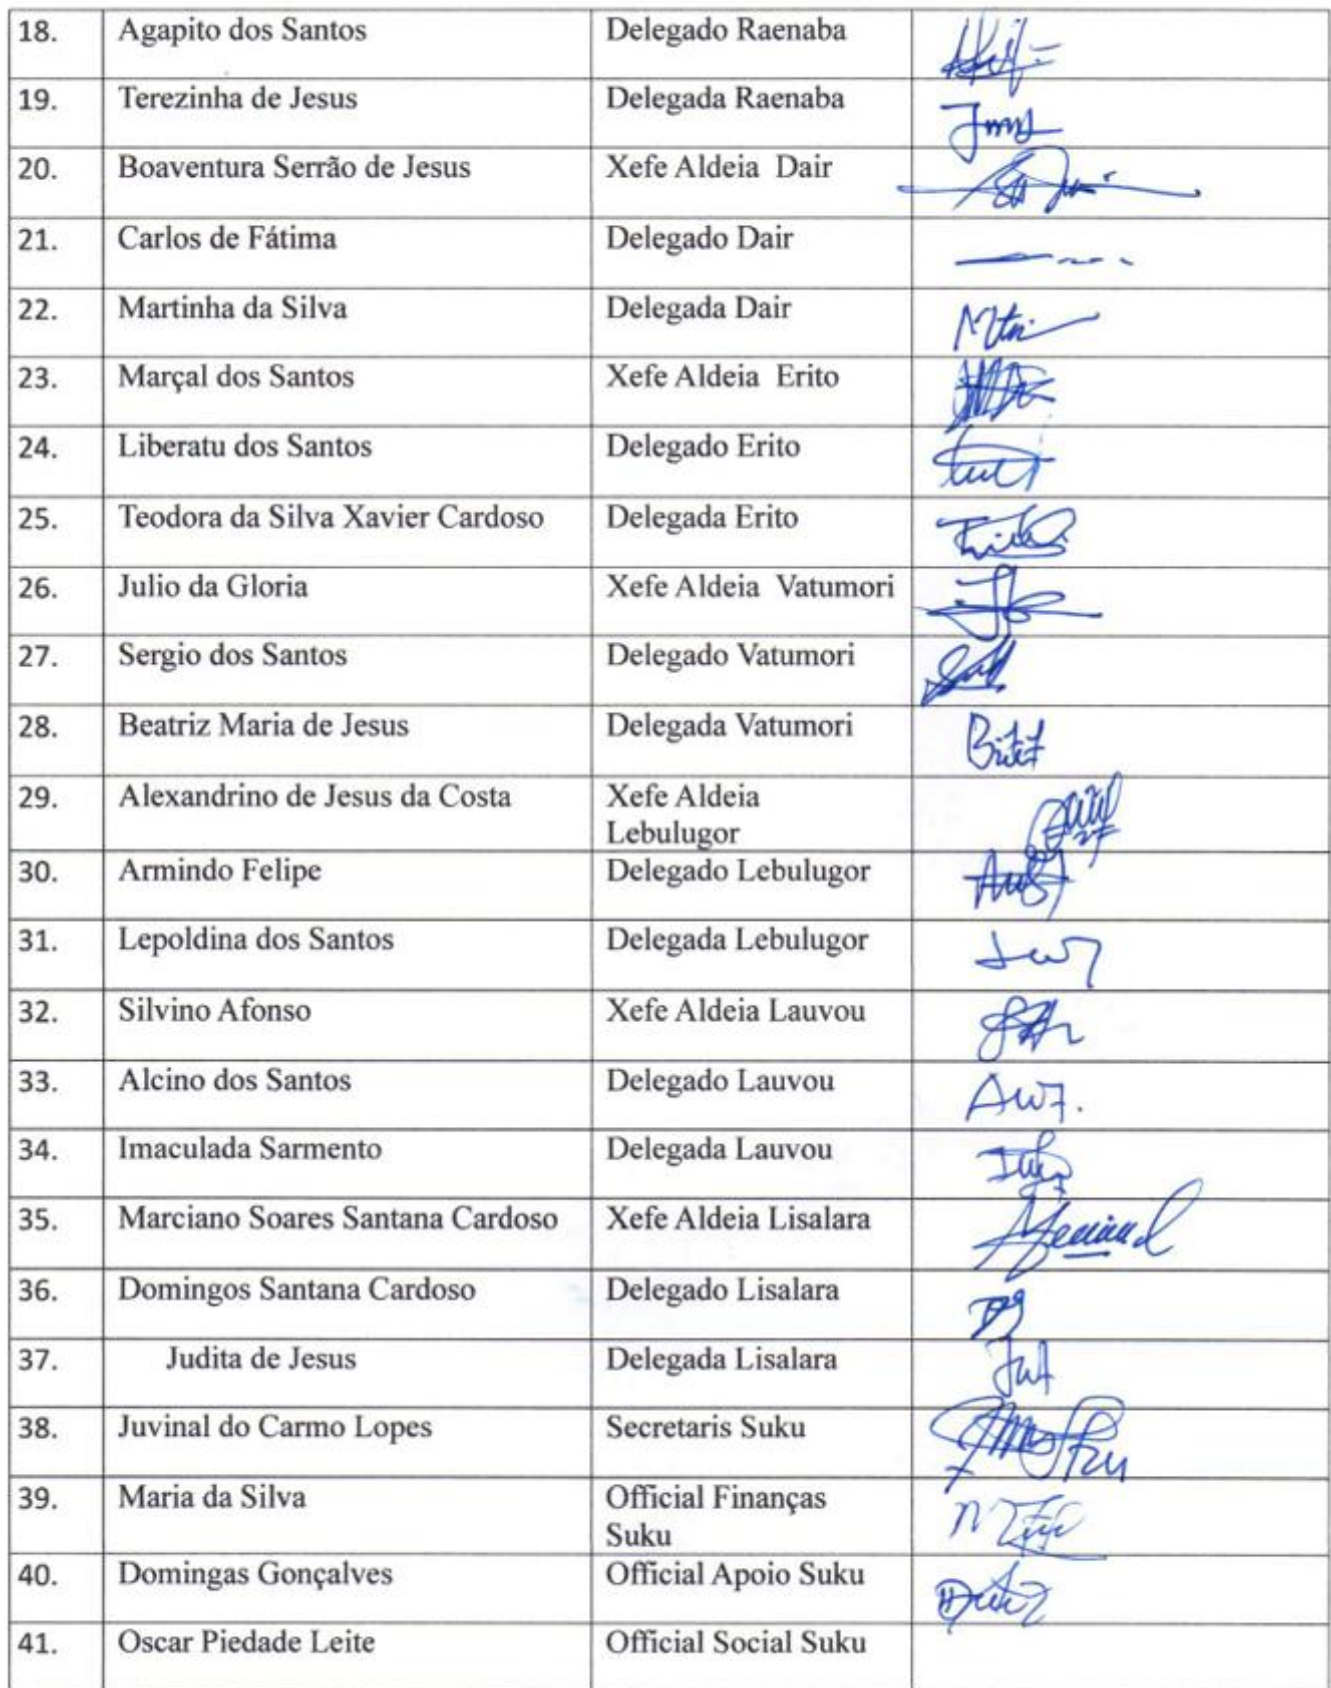 18. Agapito dos Santos Delegado Raenaba
19. Terezinha de Jesus Delegada Raenaba
20. Boaventura Serrão de Jesus Xefe Aldeia Dair
21. Carlos de Fátima Delegado Dair
22. Martinha da Silva Delegada Dair
23. Marçal dos Santos Xefe Aldeia Erito
24. Liberatu dos Santos Delegado Erito
25. Teodora da Silva Xavier Cardoso Delegada Erito
26. Julio da Gloria Xefe Aldeia Vatumori
27. Sergio dos Santos Delegado Vatumori
28. Beatriz Maria de Jesus Delegada Vatumori
29. Alexandrino de Jesus da Costa Xefe Aldeia
Lebulugor
30. Armindo Felipe Delegado Lebulugor
31. Lepoldina dos Santos Delegada Lebulugor
32. Silvino Afonso Xefe Aldeia Lauvou
33. Alcino dos Santos Delegado Lauvou
34. Imaculada Sarmento Delegada Lauvou
35. Marciano Soares Santana Cardoso Xefe Aldeia Lisalara
36. Domingos Santana Cardoso Delegado Lisalara
37. Judita de Jesus Delegada Lisalara
38. Juvinal do Carmo Lopes Secretaris Suku
39. Maria da Silva Official Finanças
Suku
40. Domingas Gonçalves Official Apoio Suku
41. Oscar Piedade Leite Official Social Suku